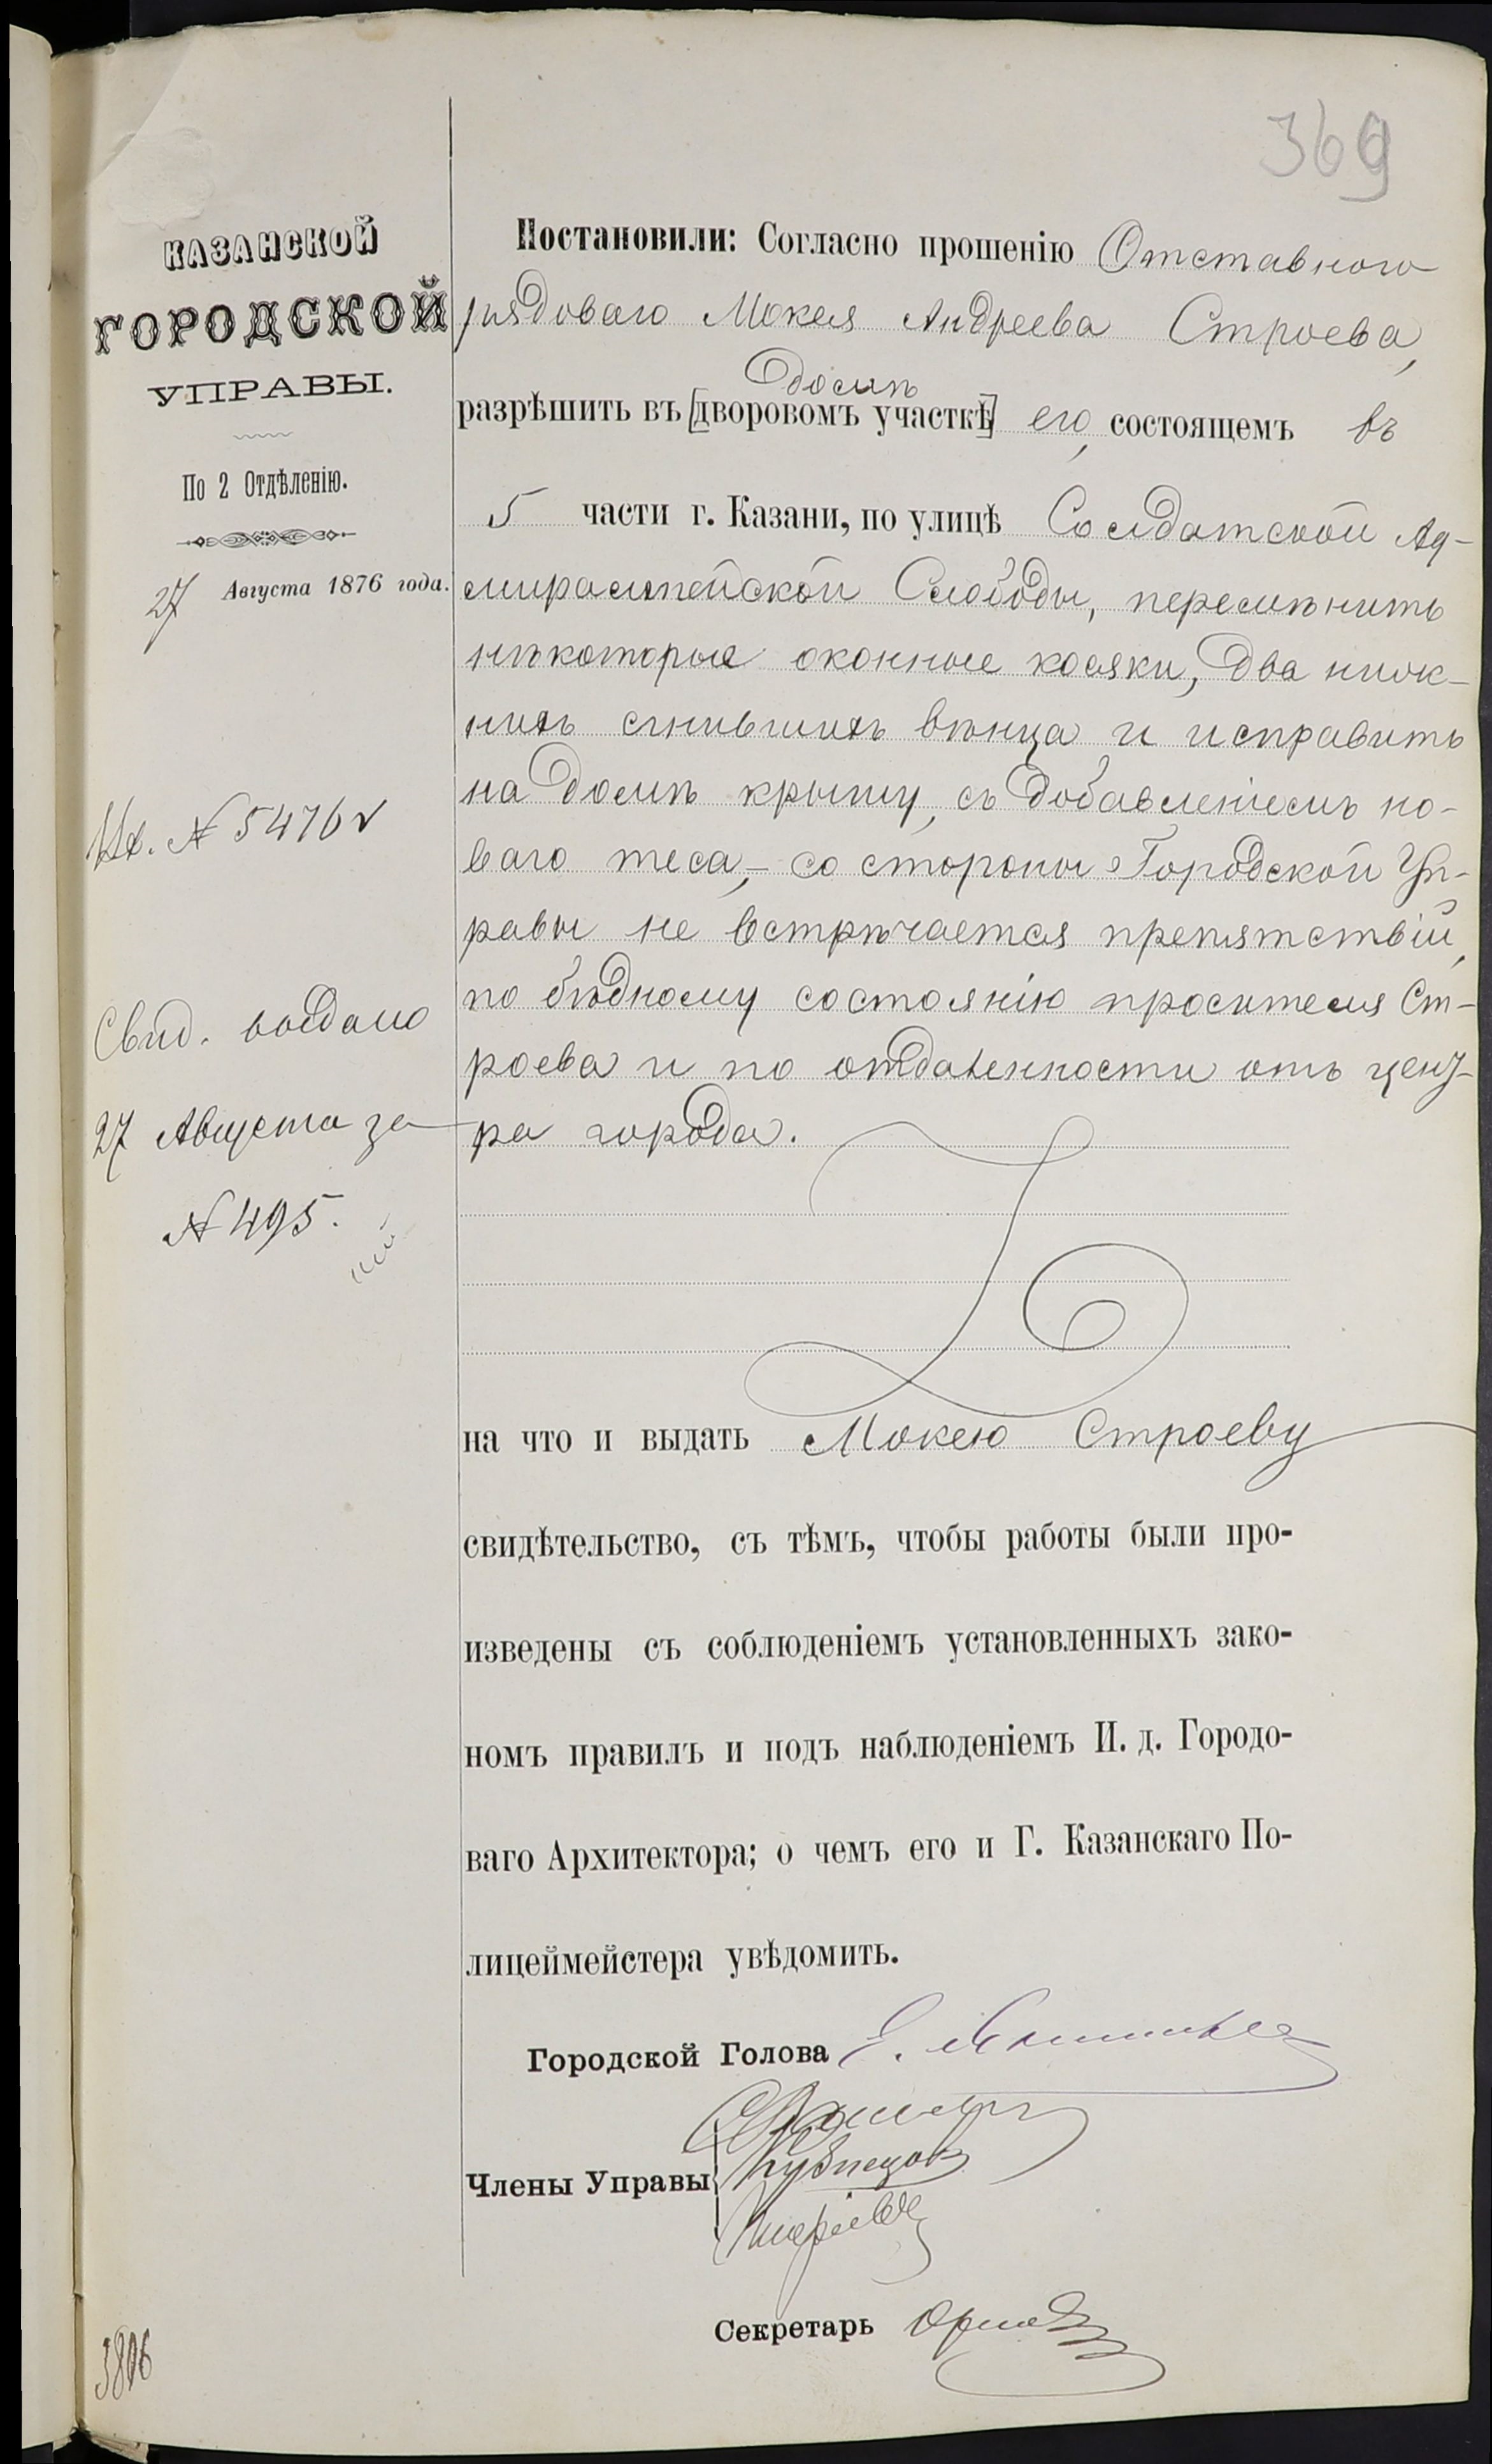 369
КАЗАНСКОЙ
ГОРОДСКОЙ
УПРАВЫ.
По 2 Отдѣленію.
27 Августа 1876 года.
Вх. № 5476
Свид. выдано
27 Августа за
№ 495.
Постановили: Согласно прошенію Отставного
рядоваго Мокея Андреева Строева,
домѣ
разрѣшить въ [дворовомъ участкѣ] его, состоящемъ въ
5 части г. Казани, по улицѣ Солдатской Ад-
миралтейской Слободы, перемѣнить
нѣкоторые оконные косяки, два ниж-
нихъ сгнившихъ вѣнца и исправить
на домѣ крышу, съ добавленіемъ но-
ваго теса, – со стороны Городской Уп-
равы не встрѣчается препятствій,
по бѣдному состоянію просителя Ст-
роева и по отдаленности отъ цент-
ра города.
на что и выдать Мокею Строеву
свидѣтельство, съ тѣмъ, чтобы работы были про-
изведены съ соблюденіемъ установленныхъ зако-
номъ правилъ и подъ наблюденіемъ И. д. Городо-
ваго Архитектора; о чемъ его и Г. Казанскаго По-
лицеймейстера увѣдомить.
Городской Голова
Члены Управы
Кузнецов
Секретарь Орлов